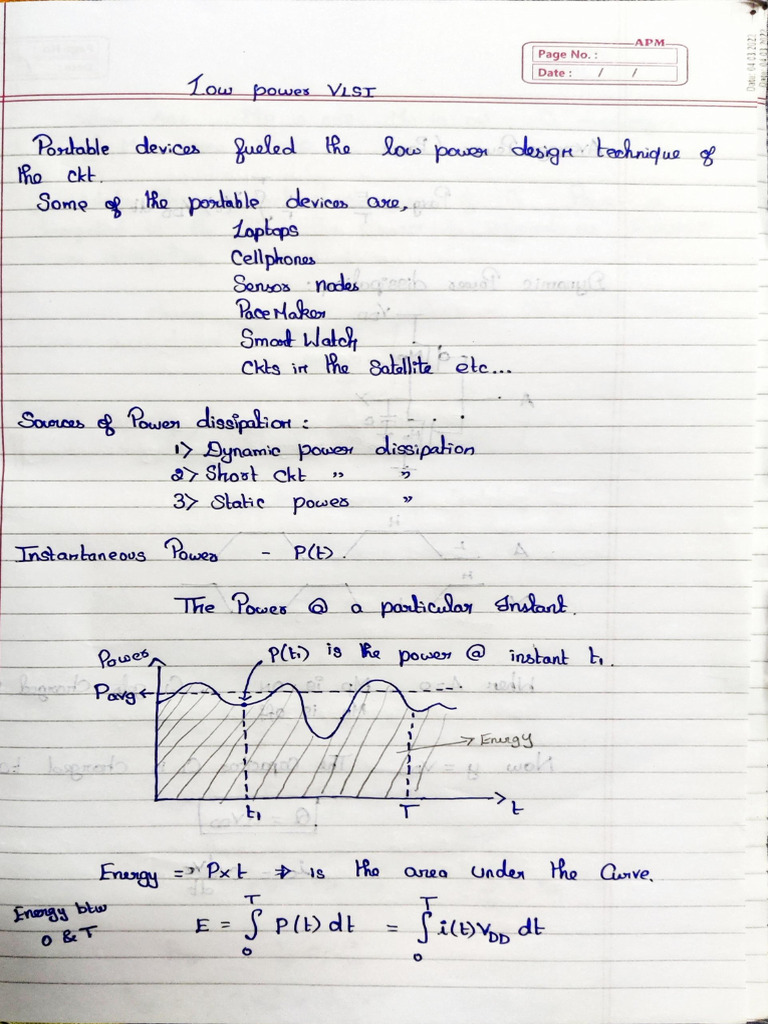 APM
Page No. :
Date : / /
Date: 04.03.2022
Low power VLSI
Portable devices fueled the low power design technique of
the ckt.
Some of the portable devices are,
Laptops
Cellphones
Sensor nodes
PaceMaker
Smart Watch
Ckts in the Satellite etc...
Sources of Power dissipation :
1> Dynamic power dissipation
2> Short Ckt " "
3> Static power "
Instantaneous Power - P(t).
The Power @ a particular Instant.
Power
P(t₁) is the power @ instant t₁.
Pavg
Energy
t₁ T t
Energy => P×t => is the area under the Curve.
Energy btw
0 & T
E = ∫₀ᵀ P(t) dt = ∫₀ᵀ i(t) V_DD dt